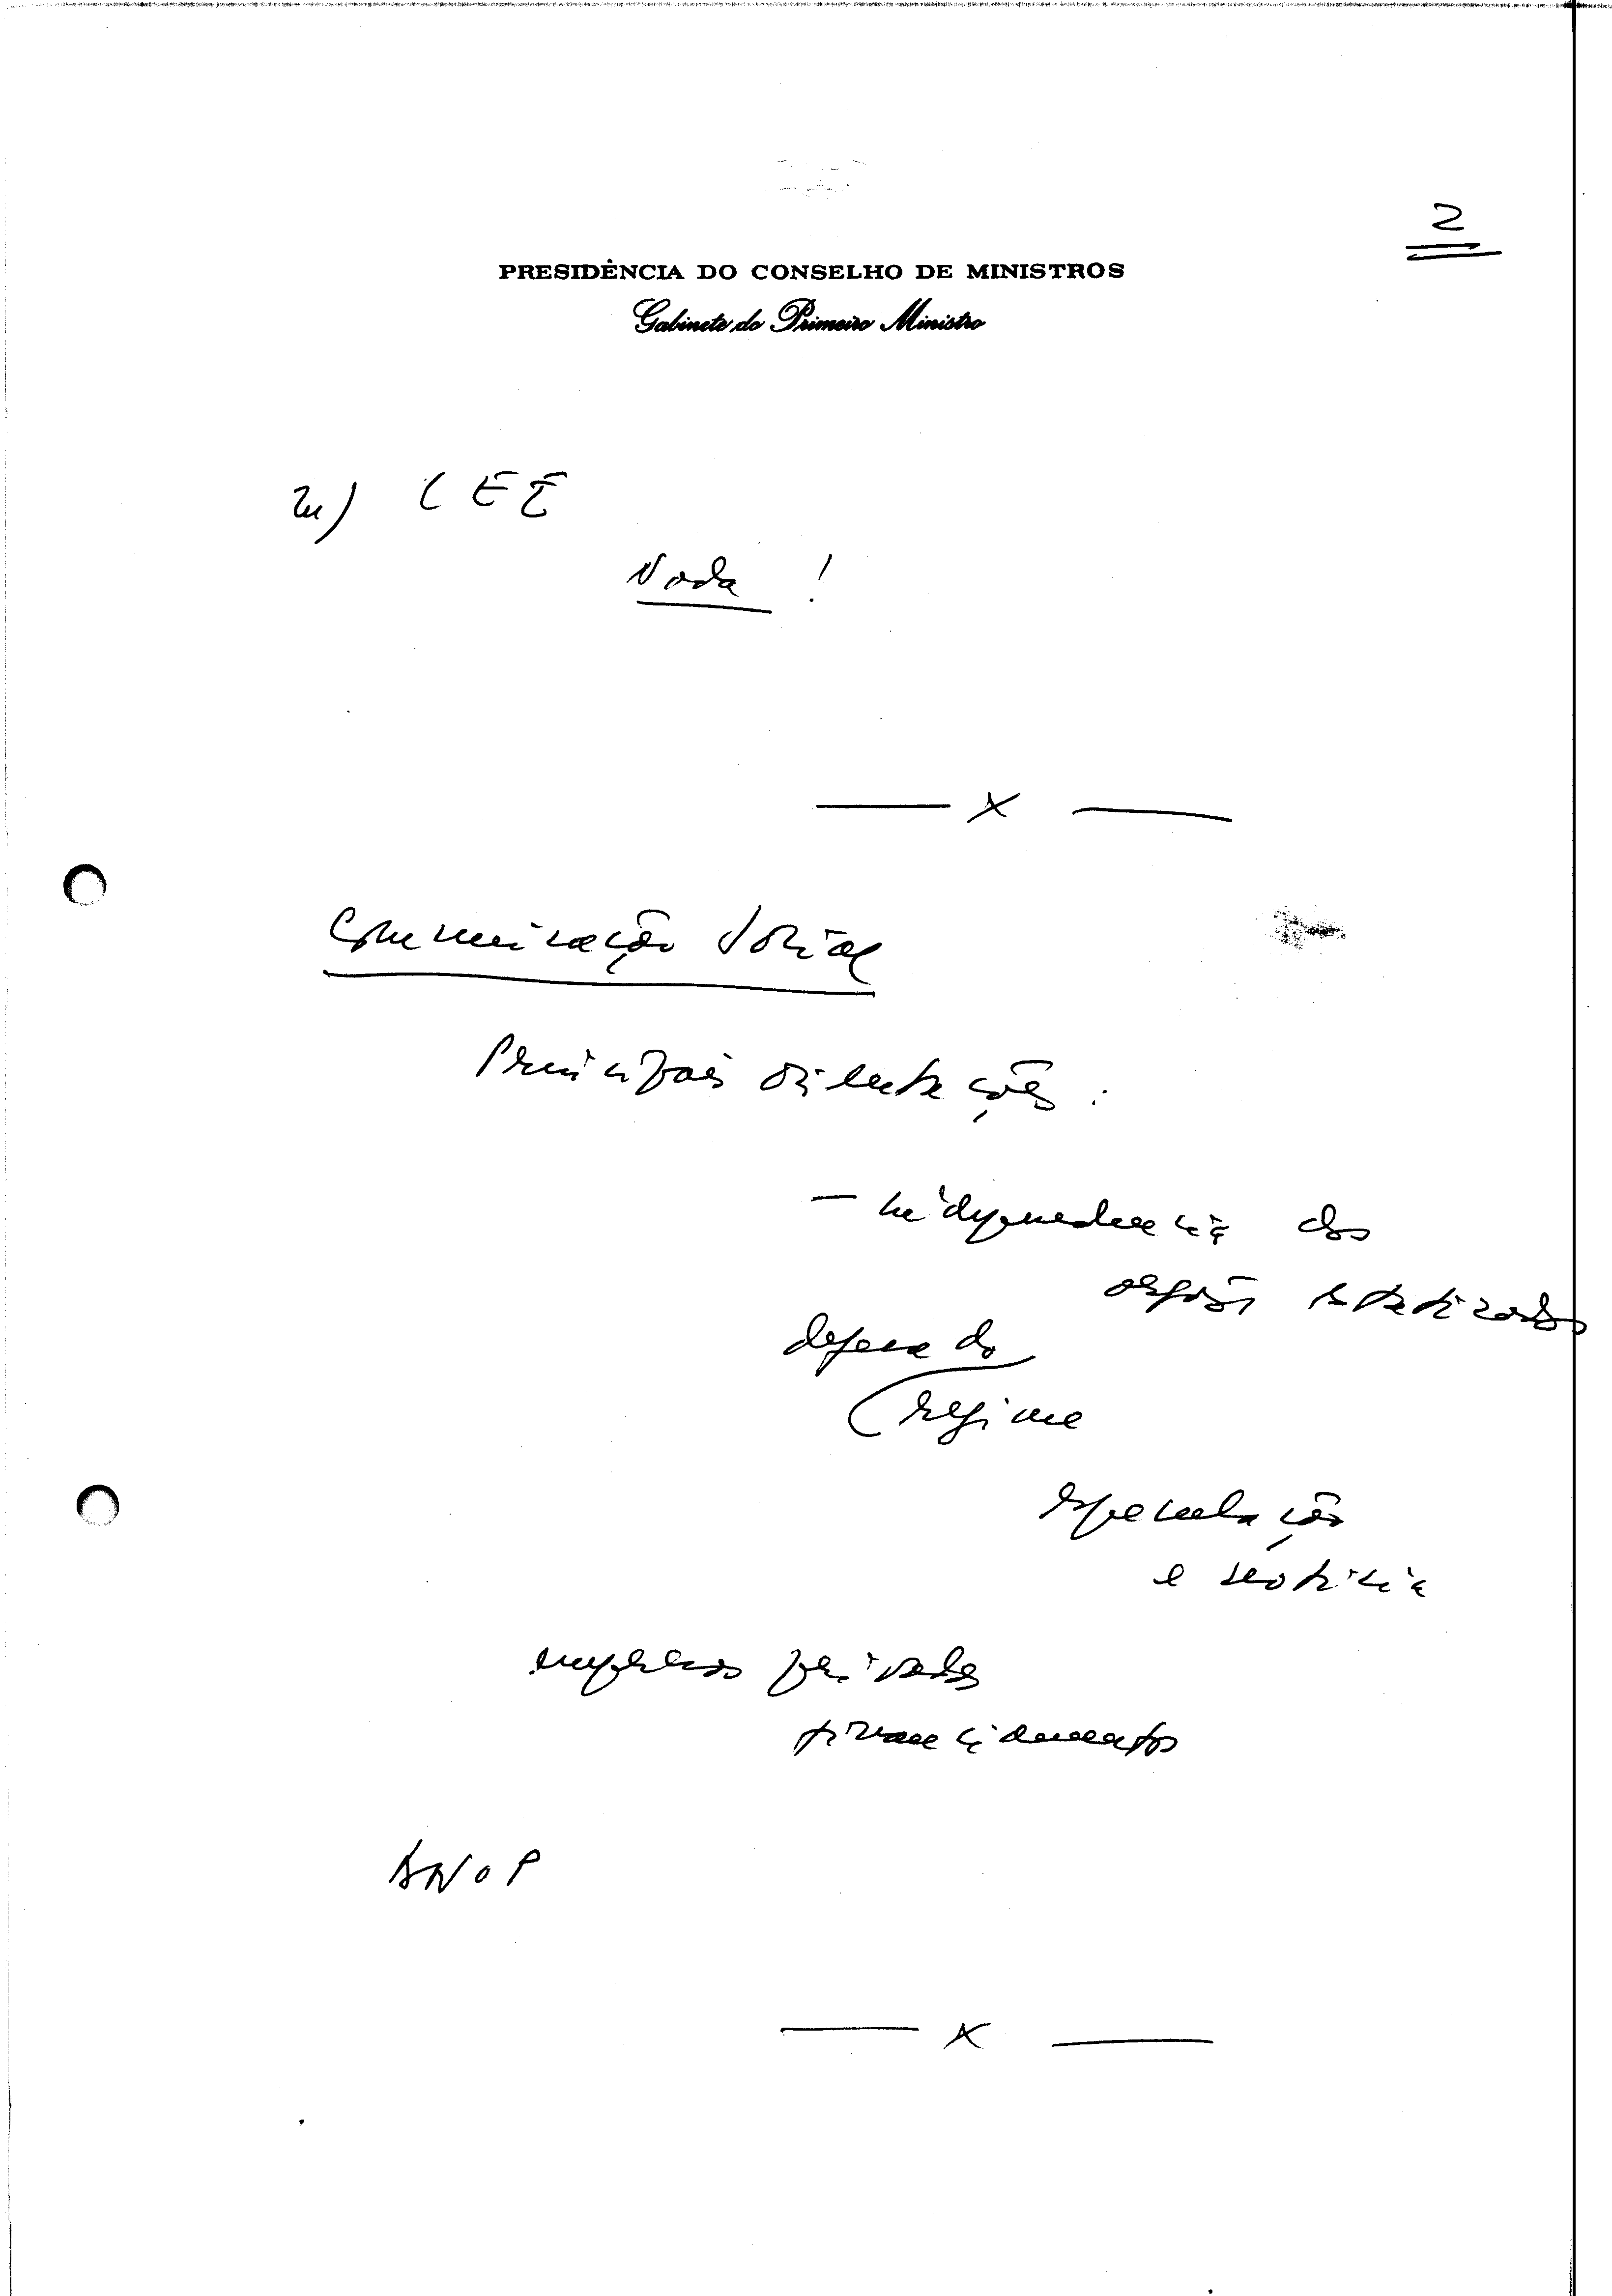 2
PRESIDÊNCIA DO CONSELHO DE MINISTROS
Gabinete do Primeiro Ministro
CEE
Nada !
— x —
Comunicação Social
Principais orientações :
— independência dos
orgãos estatizados
defesa do
regime
especulação
e notícia
empresas privadas
financiamentos
ANOP
— x —